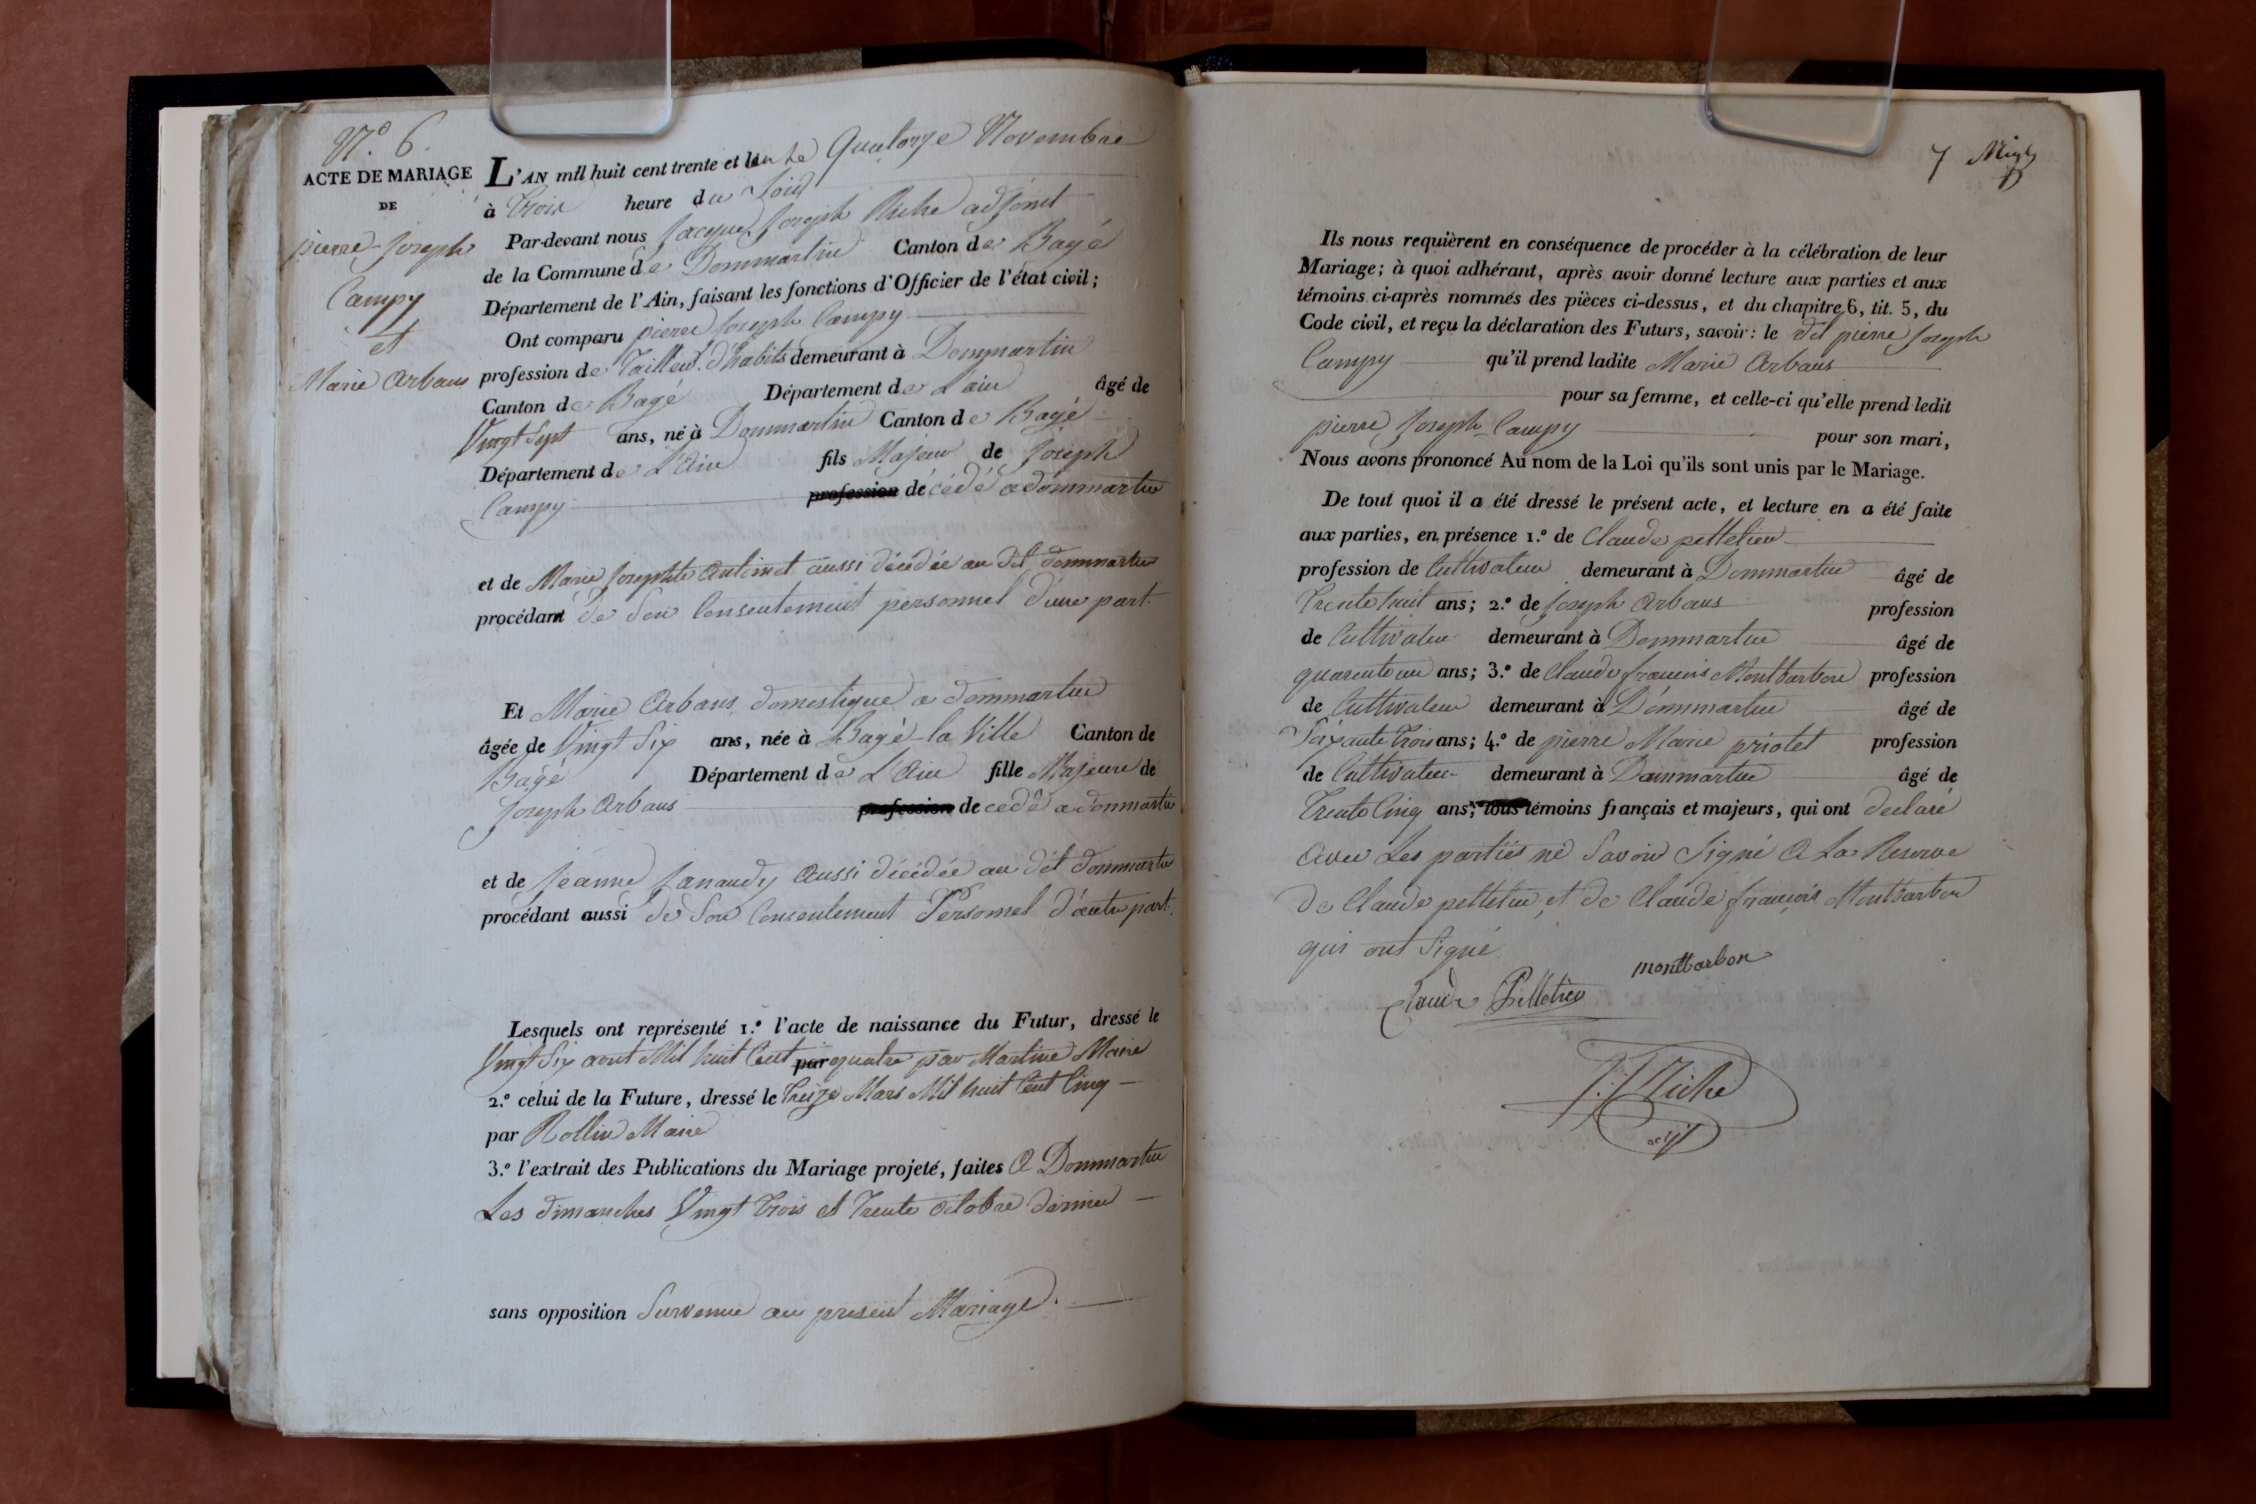 N.o 6.
ACTE DE MARIAGE
DE
pierre Joseph
Campy
et
Marie Arbans
L'AN mil huit cent trente et un Le Quatorze Novembre
à Trois heure du Soir
Par-devant nous Jacques Joseph Riche adjoint
de la Commune de Dommartin Canton de Bagé
Département de l'Ain, faisant les fonctions d'Officier de l'état civil;
Ont comparu pierre Joseph Campy
profession de Tailleur d'habits demeurant à Dommartin
Canton de Bagé Département de L'ain âgé de
Vingt Sept ans, né à Dommartin Canton de Bagé
Département de L'Ain fils Majeur de Joseph
Campy profession décédé a dommartin
et de Marie Josephte Antimet aussi décédée au dit dommartin
procédant de Son Consentement personnel d'une part.
Et Marie Arbans domestique a dommartin
âgée de Vingt Six ans, née à Bagé la Ville Canton de
Bagé Département de L'Ain fille Majeure de
Joseph Arbans profession decedé a dommartin
et de Jeanne Janaudy Aussi décédée au dit dommartin
procédant aussi de Son Consentement Personnel d'autre part.
Lesquels ont représenté 1.o l'acte de naissance du Futur, dressé le
Vingt Six aout Mil huit Cent par quatre par Martine Maire
2.o celui de la Future, dressé le Treize Mars Mil huit Cent Cinq
par Rollin Maire
3.o l'extrait des Publications du Mariage projeté, faites A Dommartin
Les dimanches Vingt Trois et Trente octobre dernier
sans opposition Survenue au present Mariage.
7
Ils nous requièrent en conséquence de procéder à la célébration de leur
Mariage; à quoi adhérant, après avoir donné lecture aux parties et aux
témoins ci-après nommés des pièces ci-dessus, et du chapitre 6, tit. 5, du
Code civil, et reçu la déclaration des Futurs, savoir: le dit pierre Joseph
Campy qu'il prend ladite Marie Arbans
pour sa femme, et celle-ci qu'elle prend ledit
pierre Joseph Campy pour son mari,
Nous avons prononcé Au nom de la Loi qu'ils sont unis par le Mariage.
De tout quoi il a été dressé le présent acte, et lecture en a été faite
aux parties, en présence 1.o de Claude pelletier
profession de Cultivateur demeurant à Dommartin âgé de
Trente huit ans; 2.o de Joseph Arbans profession
de Cultivateur demeurant à Dommartin âgé de
quarante un ans; 3.o de Claude francois Montbarbon profession
de Cultivateur demeurant à Dommartin âgé de
Soixante Trois ans; 4.o de pierre Marie priotet profession
de Cultivateur demeurant à Dommartin âgé de
Trente Cinq ans; tous témoins français et majeurs, qui ont declaré
avec Les parties ne Savoir Signé A La Reserve
de Claude pelletier et de Claude françois Montbarbon
qui ont Signé
montbarbon
Claude Pelletier
J. J. Riche
adjt